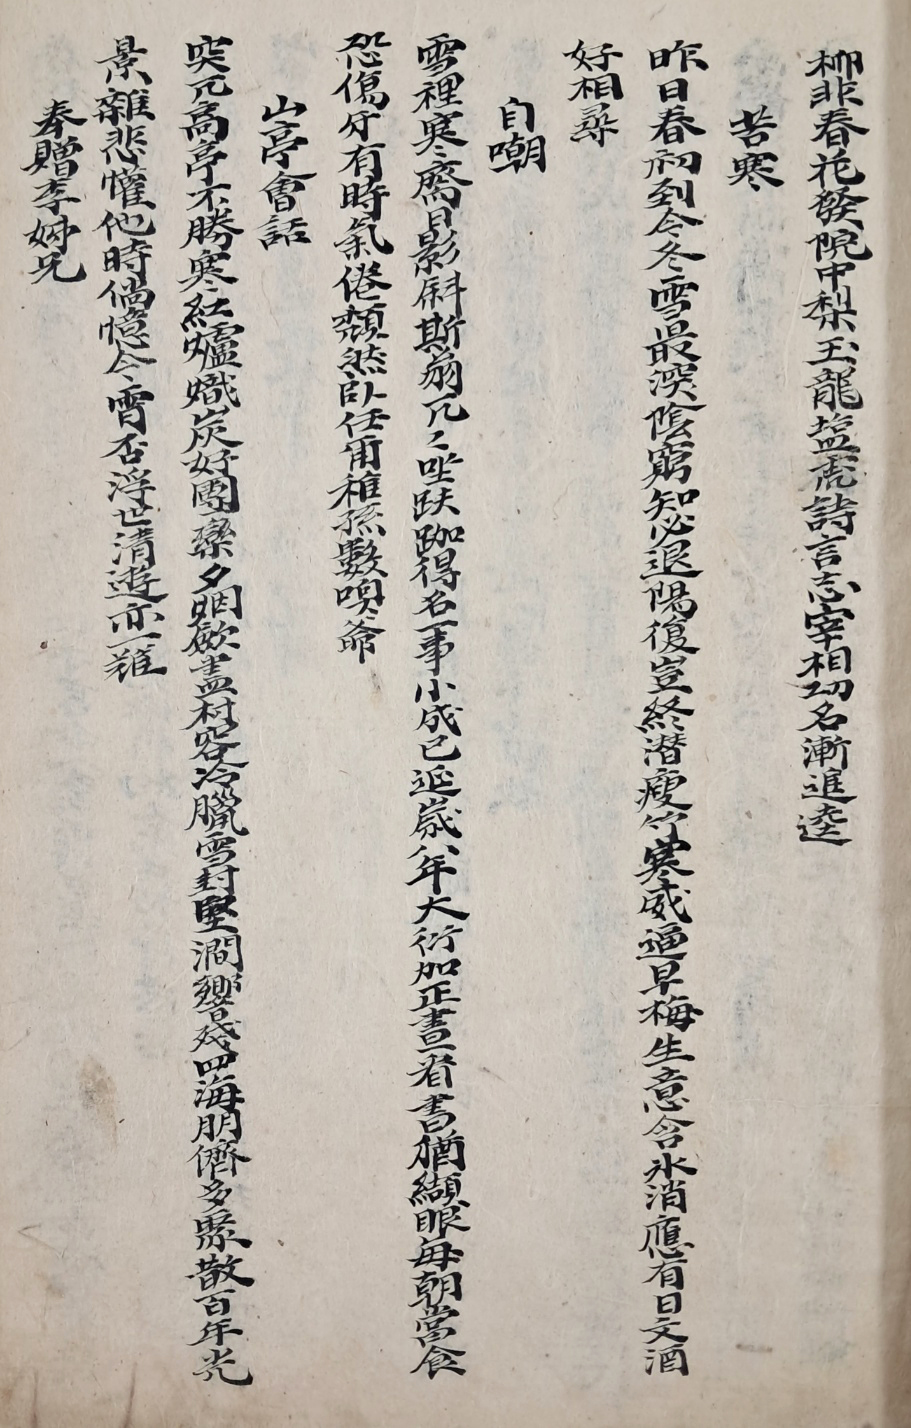 柳非春花發院中梨玉龍塩虎詩言志宰相功名漸進逵
苦寒
昨日春初到今冬雪最深陰窮知必退陽復豈終潛瘦竹寒威逼早梅生意含氷消應有日文酒
好相尋
自嘲
雪裡寒齋日影斜斯翁兀〻坐趺跏得名一事小成已延歲八年大衍加正晝看書猶纈眼每朝當食
恐傷牙有時氣倦頹然臥任甫稚孫數喚爺
山亭會話
突兀高亭不勝寒紅爐熾炭好團欒夕烟欲盡村容冷臘雪封堅澗響殘四海朋儕多聚散百年光
景雜悲懽他時倘憶今宵否浮世清遊亦一難
奉贈李姆兄